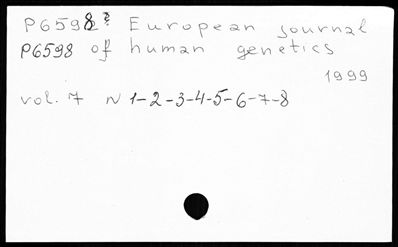 P6598 European journal
P6598 of human genetics
1999
vol. 7 N 1-2-3-4-5-6-7-8